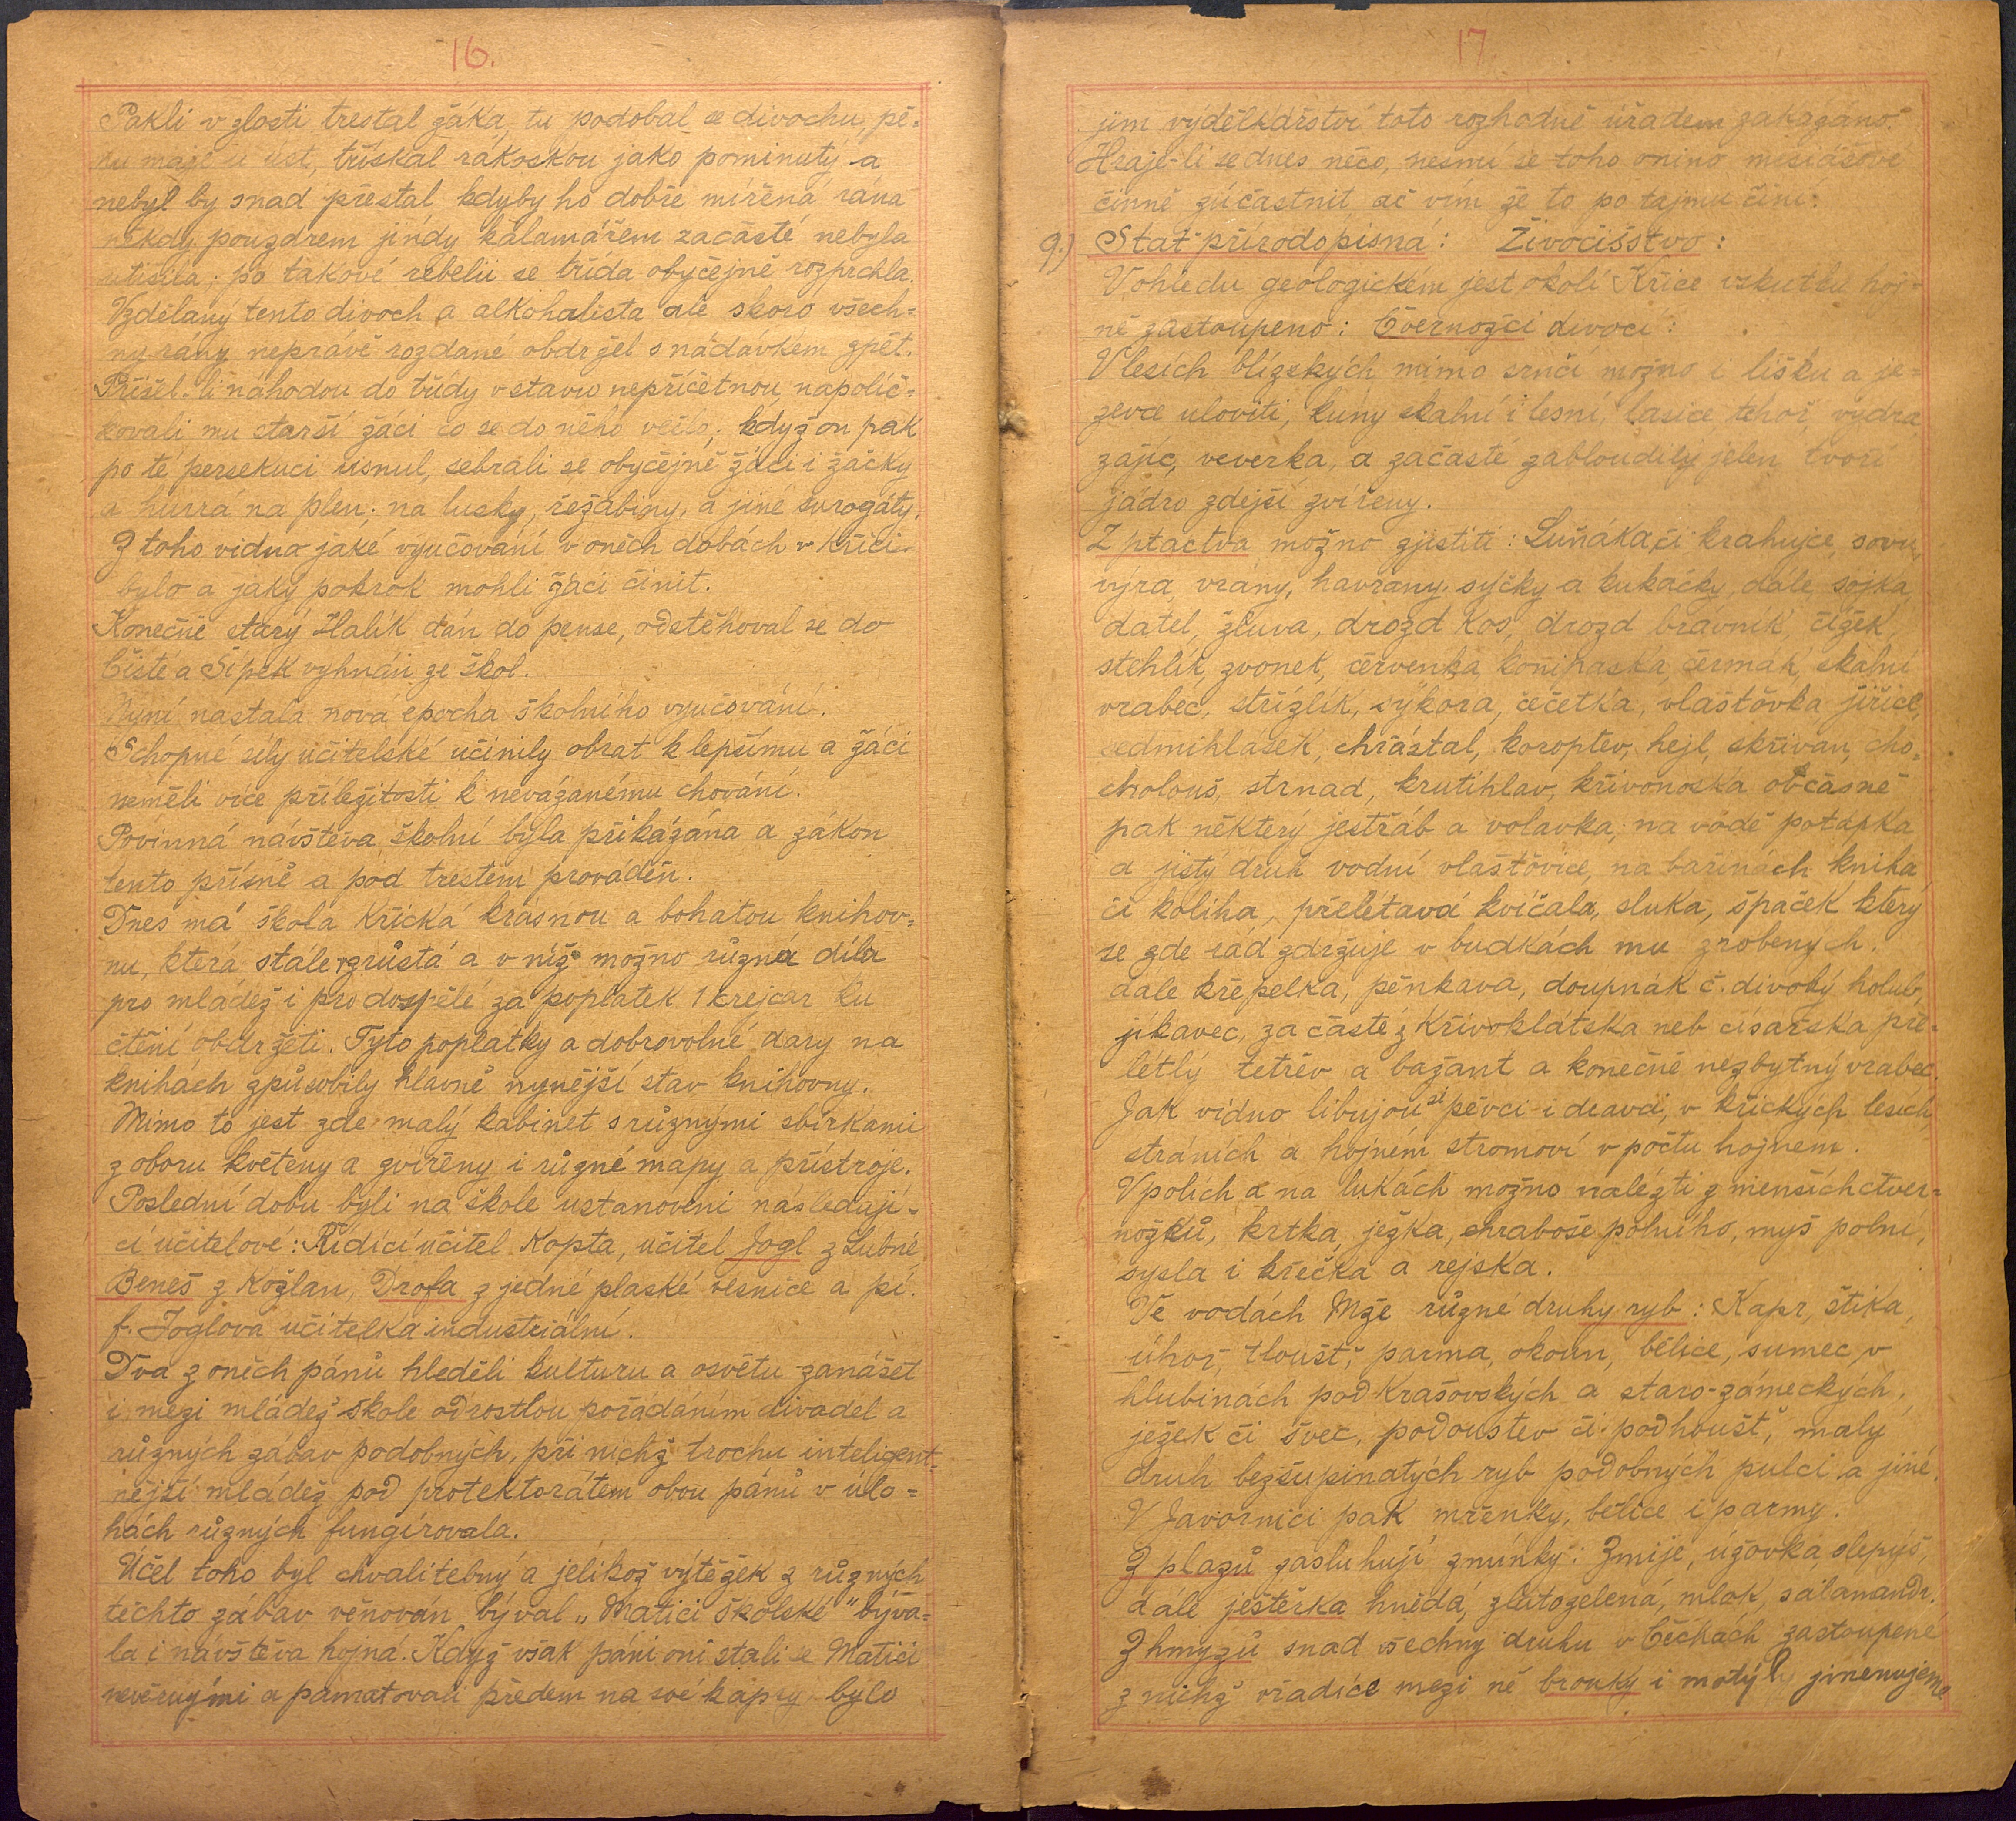 16.
Pakli v zlosti trestal žáka, tu podobal se divochu, pě-
nu maje u úst, třískal rákoskou jako pominutý a
nebyl by snad přestal kdyby ho dobře mířená rána
někdy pouzdrem jindy kalamářem začasté nebyla
utišila; po takové rebelii se třída obyčejně rozprchla.
Vzdělaný tento divoch a alkohalista ale skoro všech-
ny rány nepravě rozdané obdržel s nádavkem zpět.
Přišel-li náhodou do třídy v stavu nepříčetnou, napolič-
kovali mu starší žáci co se do něho vešlo; když on pak
po té persekuci usnul, sebrali se obyčejně žáci i žačky
a hurrá na plen; na lusky, řežabiny, a jiné surogáty.
Z toho vidno jaké vyučování v oněch dobách v Kříci
bylo a jaký pokrok mohli žáci činit.
Konečně starý Halík dán do pense, odstěhoval se do
Čisté a Šípek vyhnán ze škol.
Nyní nastala nová epocha školního vyučování.
Schopné síly učitelské učinily obrat k lepšímu a žáci
neměli více příležitosti k neváganému chování.
Povinná návštěva školní byla přikázána a zákon
tento přísně a pod trestem prováděn.
Dnes má škola Křická krásnou a bohatou knihov-
nu, která stále vzrůstá a v níž možno různá díla
pro mládež i pro dospělé za poplatek 1 krejcar ku
čtění obdržeti. Tyto poplatky a dobrovolné dary na
knihách způsobily hlavně nynější stav knihovny.
Mimo to jest zde malý kabinet s různými sbírkami
z oboru květeny a zvířeny i různé mapy a přístroje.
Poslední dobu byli na škole ustanoveni následují-
cí učitelové: Řídící učitel Kopta, učitel Jogl z Lubné,
Beneš z Kožlan, Drofa z jedné plaské vesnice a pí.
f. Joglova učitelka industriální.
Dva z oněch pánů hleděli kulturu a osvětu zanášet
i mezi mládež škole odrostlou pořádáním divadel a
různých zábav podobných, při nichž trochu inteligent-
nější mládež pod protektorátem obou pánů v úlo-
hách různých fungírovala.
Účel toho byl chvalitebný a jelikož výtěžek z různých
těchto zábav věnován býval „Matici školské" býva-
la i návštěva hojná. Když však páni oni stali se Matici
nevěrnými a pamatovali předem na své kapsy bylo
17
jim výdělkářství toto rozhodně úřadem zakázáno.
Hraje-li se dnes něco, nesmí se toho onino mesiášové
činně zúčastnit ač vím že to po tajmu činí.
9.) Stať přírodopisná: Živočišstvo:
V ohledu geologickém jest okolí Kříce vskutku hoj-
ně zastoupeno: Čvernožci divocí:
V lesích blízských mimo srnčí možno i lišku a je-
zevce uloviti, kuny skalní i lesní, lasice tchoř, vydra
zajíc, veverka, a začasté zabloudilý jelen tvoří
jádro zdejší zvířeny.
Z ptactva možno zjistiti: Luňáka či krahujce, sovu,
výra, vrány, havrany, sýčky a kukačky, dále sojka
datel, žluva, drozd kos, drozd brávník, čížek,
stehlík, zvonek, červenka, konipaska, čermák, skalní
vrabec, střízlík, sýkora, čečetka, vlaštovka jiřice,
sedmihlásek, chřástal, koroptev, hejl, skřivan, cho-
cholouš, strnad, krutihlav, křivonoska občasně
pak některý jestřáb a volavka; na vodě potápka
a jistý druh vodní vlaštovice, na bařinách kniha
či koliha, přelétavá kvíčala, sluka, špaček který
se zde rád zdržuje v budkách mu zrobených.
dále křepelka, pěnkava, doupnák č. divoký holub,
jikavec, za časté z Křivoklátska neb císařska pře-
létlý tetřev a bažant a konečně nezbytný vrabec.
Jak vidno libujou si pěvci i dravci, v křických lesích,
stráních a hojném stromoví v počtu hojnem.
V polích a na lukách možno nalézti z menších čtver-
nožků, krtka, ježka, chraboše polního, myš polní,
sysla i křečka a rejska.
Ve vodách Mže různé druhy ryb: Kapr, štika,
úhoř, tloušť, parma, okoun, bělice, sumec v
hlubinách pod Krašovských a staro-zámeckých,
ježek či švec, podoustev či podhoušť, malý
druh bezšupinatých ryb podobných pulci a jiné.
V Javornici pak mřenky, bělice i parmy.
Z plazů zasluhují zmínky: Zmije, úžovka, slepýš,
dále ještěrka hnědá, žlutozelená, mlok, salamandr.
Z hmyzů snad všechny druhu v Čechách zastoupené
z nichž vřadíce mezi ně brouky i motýly jmenujeme